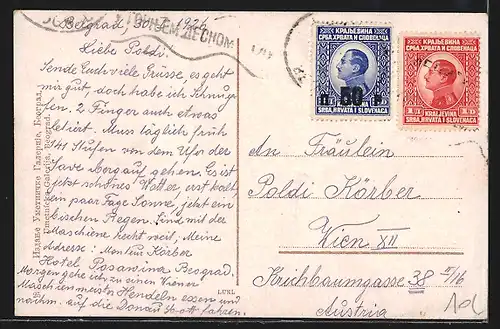 Belgrad, 1926
Liebe Poldi.
Sende Euch viele Grüsse, es geht
mir gut, doch habe ich Schnupf
fen. 2 Finger auch etwas
Muss täglich früh
141 Stufen von dem Ufer der
Save bergauf gehen. Es ist
jetzt schönes Wetter, erst halt
ein paar Tage Sonne, jetzt ein
bischen Regen. Sind mit der
Maschiene recht weit; Meine
Adresse: Monteur Körber
Hotel Posawina Beograd.
Morgen gehe ich zu einen Wiener
Maschienmeister Hendeln essen und
nachm. auf die Donau Boot fahren.
Издање Уметничке Галерије, Београд.
Umetnička Galerija, Beograd.
LUKL
ДЕСНОМ
КРАЉЕВИНА
СРБА, ХРВАТА И СЛОВЕНАЦА
50
KRALJEVINA
SRBA, HRVATA I SLOVENACA
КРАЉЕВИНА
СРБА, ХРВАТА И СЛОВЕНАЦА
1 D
KRALJEVINA
SRBA, HRVATA I SLOVENACA
An Fräulein
Poldi Körber
Wien XII
Krichbaumgasse 38 2/16
Austria